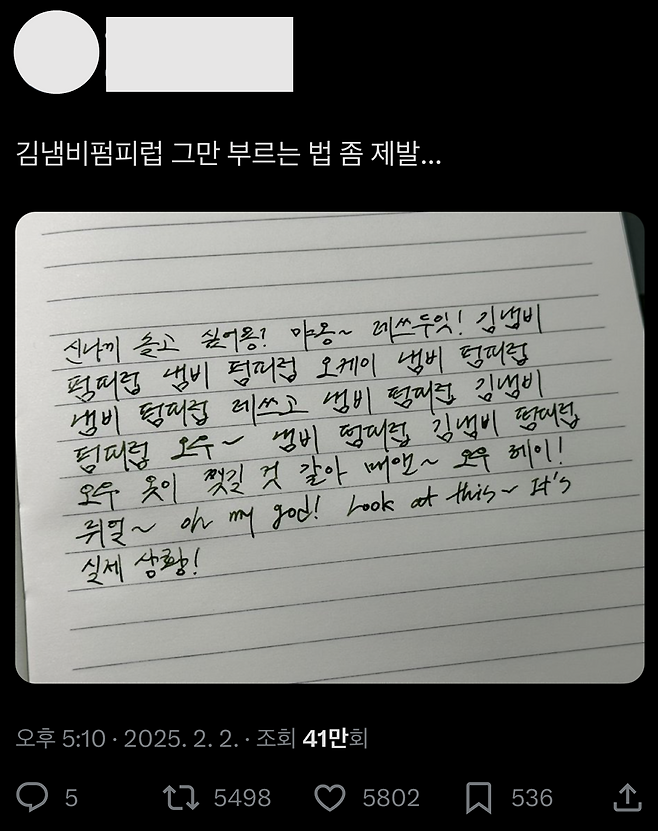 김냄비펌피럽 그만 부르는 법 좀 제발...
신나끼 놀고 싶어용? 먀옹~ 레쓰두잇! 김냄비
펌피럽 냄비 펌피럽 오케이 냄비 펌피럽
냄비 펌피럽 레쓰고 냄비 펌피럽 김냄비
펌피럽 오우~ 냄비 펌피럽 김냄비 펌피럽
오우 옷이 찢길 것 같아 매앤~ 오우 헤이!
뤼얼~ oh my god! Look at this~ It's
실제 상황!
오후 5:10 · 2025. 2. 2. · 조회 41만회
5 5498 5802 536